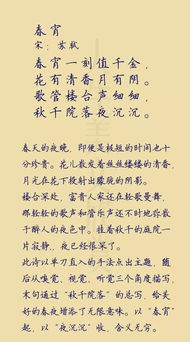 春宵
宋:苏轼
春宵一刻值千金,
花有清香月有阴。
歌管楼台声细细,
秋千院落夜沉沉。
春天的夜晚,即便是极短的时间也十
分珍贵。花儿散发着丝丝缕缕的清香,
月光在花下投射出朦胧的阴影。
楼台深处,富贵人家还在轻歌曼舞,
那轻轻的歌声和管乐声还不时地弥散
于醉人的夜色中。挂着秋千的庭院一
片寂静,夜已经很深了。
此诗以单刀直入的手法点出主题,随
后从嗅觉、视觉、听觉三个角度描写,
末句通过“秋千院落”的总写,给美
好的春夜增添了无限意味。以“春宵”
起,以“夜沉沉”收,含义无穷。